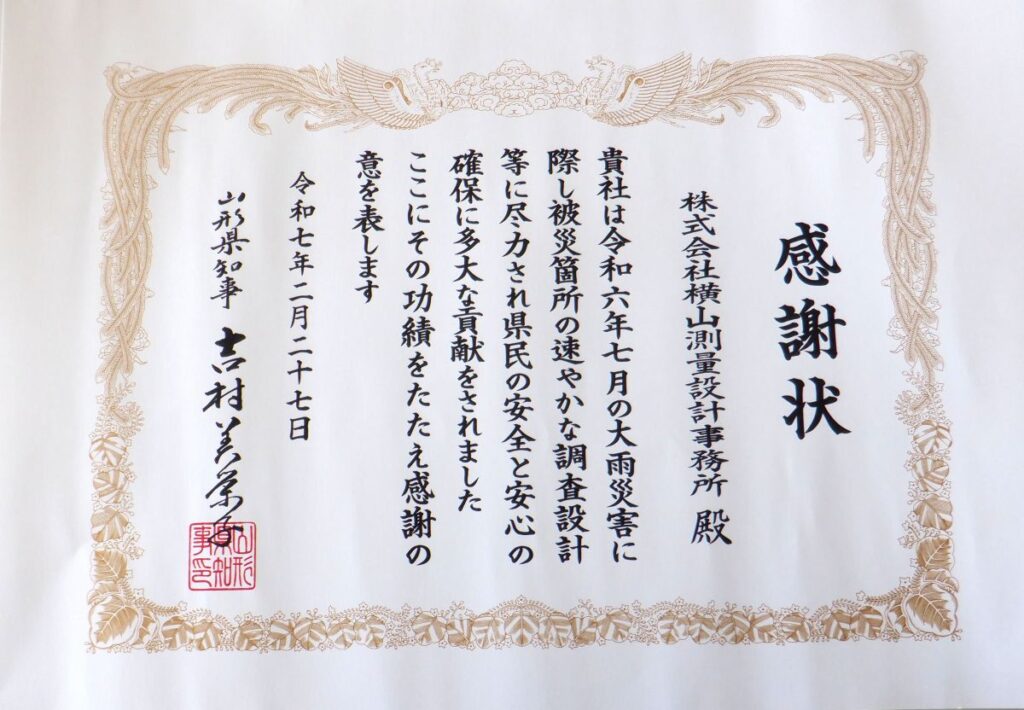 感謝状
株式会社横山測量設計事務所 殿
貴社は令和六年七月の大雨災害に
際し被災箇所の速やかな調査設計
等に尽力され県民の安全と安心の
確保に多大な貢献をされました
ここにその功績をたたえ感謝の
意を表します
令和七年二月二十七日
山形県知事 吉村美栄子
山形
県知
事印